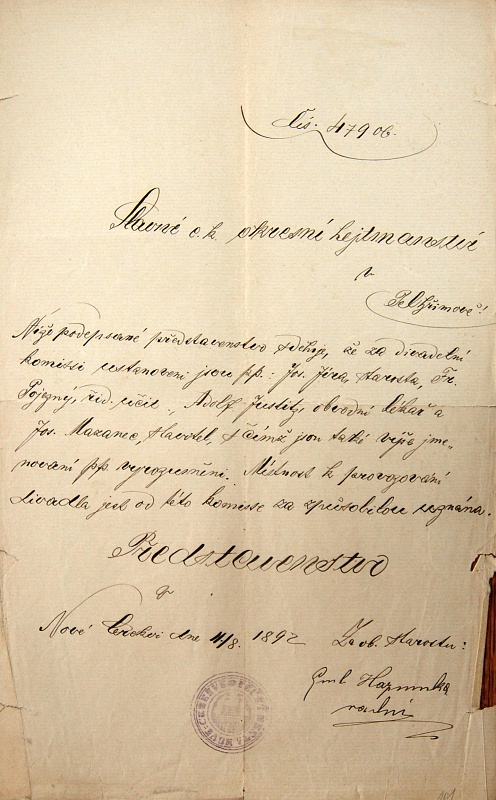 Čís. 47906.
Slavné c. k. okresní hejtmanství
v
Pelhřimově!
Níže podepsané představenstvo sděluje, že za divadelní
komissi ustanoveni jsou pp.: Jos. Jíra, starosta, Fr.
Pojezný, říd. učit., Adolf Justitz, obvodní lékař a
Jos. Mazanec, stavitel, s čímž jsou také výše jme-
novaní pp. vyrozuměni. Místnost k provozování
divadla jest od této komisse za způsobilou uznána.
Představenstvo
v
Nové Cerekvi dne 11/8. 1892
Za ob. starostu:
radní